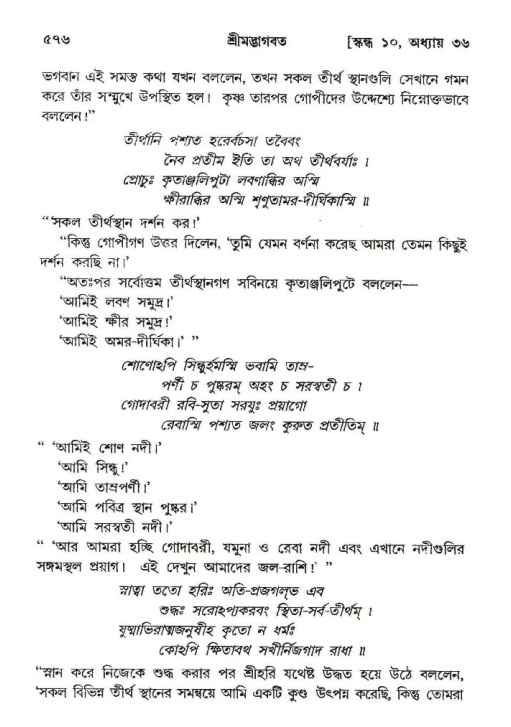 ৫৭৬ শ্রীমদ্ভাগবত [স্কন্ধ ১০, অধ্যায় ৩৬
ভগবান এই সমস্ত কথা যখন বললেন, তখন সকল তীর্থ স্থানগুলি সেখানে গমন
করে তাঁর সম্মুখে উপস্থিত হল। কৃষ্ণ তারপর গোপীদের উদ্দেশ্যে নিম্নোক্তভাবে
বললেন!”
তীর্থানি পশ্যত হরের্বচসা তবৈবং
নৈব প্রতীম ইতি তা অথ তীর্থবর্যাঃ ।
প্রোচুঃ কৃতাঞ্জলিপুটা লবণাব্ধির অস্মি
ক্ষীরাব্ধির অস্মি শৃণুতামর-দীর্ঘিকাস্মি ॥
“‘সকল তীর্থস্থান দর্শন কর!’
“কিন্তু গোপীগণ উত্তর দিলেন, ‘তুমি যেমন বর্ণনা করেছ আমরা তেমন কিছুই
দর্শন করছি না।’
“অতঃপর সর্বোত্তম তীর্থস্থানগণ সবিনয়ে কৃতাঞ্জলিপুটে বললেন—
‘আমিই লবণ সমুদ্র।’
‘আমি ক্ষীর সমুদ্র!’
‘আমিই অমর-দীর্ঘিকা।’ ”
শোণোঽপি সিন্ধুর্হমস্মি ভবামি তাম্র-
পর্ণী চ পুষ্করম্ অহং চ সরস্বতী চ ।
গোদাবরী রবি-সুতা সরযুঃ প্রয়াগো
রেবাস্মি পশ্যত জলং কুরুত প্রতীতিম্ ॥
“ ‘আমিই শোণ নদী।’
‘আমি সিন্ধু!’
‘আমি তাম্রপর্ণী।’
‘আমি পবিত্র স্থান পুষ্কর।’
‘আমি সরস্বতী নদী।’
“ ‘আর আমরা হচ্ছি গোদাবরী, যমুনা ও রেবা নদী এবং এখানে নদীগুলির
সঙ্গমস্থল প্রয়াগ। এই দেখুন আমাদের জল-রাশি!’ ”
স্নাত্বা ততো হরিঃ অতি-প্রজগল্‌ভ এব
শুদ্ধঃ সরোঽপ্যকরবং স্থিতা-সর্ব-তীর্থম্ ।
যুষ্মাভিরাত্মজনুষীহ কৃতো ন ধর্মঃ
কোঽপি ক্ষিতাবথ সখীর্নিজগাদ রাধা ॥
“স্নান করে নিজেকে শুদ্ধ করার পর শ্রীহরি যথেষ্ট উদ্ধত হয়ে উঠে বললেন,
‘সকল বিভিন্ন তীর্থ স্থানের সমন্বয়ে আমি একটি কুণ্ড উৎপন্ন করেছি, কিন্তু তোমরা